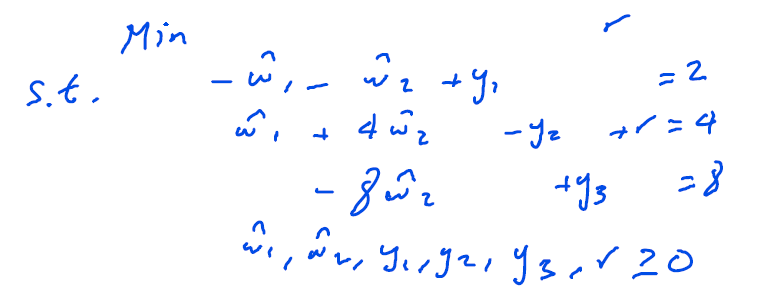 Min r
s.t. - ŵ₁ - ŵ₂ + y₁ = 2
ŵ₁ + 4ŵ₂ - y₂ + r = 4
- 8ŵ₂ + y₃ = 8
ŵ₁, ŵ₂, y₁, y₂, y₃, r ≥ 0